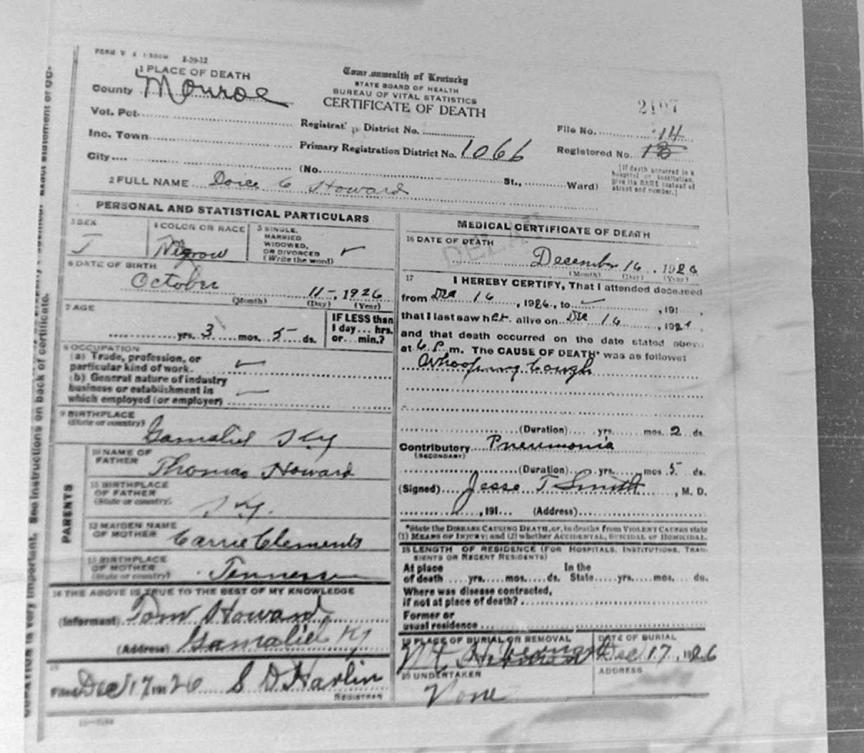 FORM V. S. 1-500M 2-29-12
1 PLACE OF DEATH
County Monroe
Vot. Pct.
Inc. Town
City
Commonwealth of Kentucky
STATE BOARD OF HEALTH
BUREAU OF VITAL STATISTICS
CERTIFICATE OF DEATH
Registrat District No.
Primary Registration District No. 1066
(No. St., Ward)
File No. 14
Registered No.
[If death occurred in a
hospital or institution,
give its NAME instead of
street and number.]
2 FULL NAME C Howard
PERSONAL AND STATISTICAL PARTICULARS
3 SEX
4 COLOR OR RACE Negrow
5 SINGLE,
MARRIED
WIDOWED,
OR DIVORCED
(Write the word) ✓
6 DATE OF BIRTH
October 11-, 1926
(Month) (Day) (Year)
7 AGE
yrs. 3 mos. 5- ds.
IF LESS than
1 day... hrs.
or... min.?
8 OCCUPATION
(a) Trade, profession, or
particular kind of work. ✓
(b) General nature of industry
business or establishment in
which employed (or employer) ✓
9 BIRTHPLACE
(State or country)
Gamaliel Ky
PARENTS
10 NAME OF
FATHER
Thomas Howard
11 BIRTHPLACE
OF FATHER
(State or country)
Ky.
12 MAIDEN NAME
OF MOTHER
Carrie Clements
13 BIRTHPLACE
OF MOTHER
(State or country)
Tennessee
14 THE ABOVE IS TRUE TO THE BEST OF MY KNOWLEDGE
(Informant) Tom Howard
(Address) Gamaliel Ky
15
Filed Dec 17 1926 S D Harlin
REGISTRAR
MEDICAL CERTIFICATE OF DEATH
16 DATE OF DEATH
December 16, 1926
(Month) (Day) (Year)
17
I HEREBY CERTIFY, That I attended deceased
from Dec 16, 1926, to ✓, 191
that I last saw her alive on Dec 16, 1926,
and that death occurred on the date stated above
at 6 P. m. The CAUSE OF DEATH* was as follows:
Whooping Cough
(Duration) yrs. mos. 2 ds.
Contributory Pneumonia
(SECONDARY)
(Duration) yrs. mos. 5 ds.
(Signed) Jesse T Smith, M. D.
, 191 (Address)
*State the DISEASE CAUSING DEATH, or, in deaths from VIOLENT CAUSES state
(1) MEANS OF INJURY; and (2) whether ACCIDENTAL, SUICIDAL OR HOMICIDAL.
18 LENGTH OF RESIDENCE (FOR HOSPITALS, INSTITUTIONS, TRAN-
SIENTS OR RECENT RESIDENTS)
At place In the
of death yrs. mos. ds. State yrs. mos. ds.
Where was disease contracted,
if not at place of death?
Former or
usual residence
19 PLACE OF BURIAL OR REMOVAL
DATE OF BURIAL
Dec 17, 1926
20 UNDERTAKER
None
ADDRESS